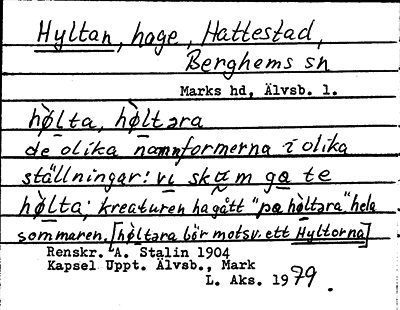 Hyltan, hage, Hattestad,
Berghems sn
Marks hd, Älvsb. l.
hø̀lta, hø̀ltəra
de olika namnformerna i olika
ställningar: vi ska m ga te
hø̀lta; kreaturen ha gått "pa hø̀ltəra" hela
sommaren. [hø̀ltəra bör motsv. ett Hyltorna]
Renskr. A. Stalin 1904
Kapsel Uppt. Älvsb., Mark
L. Aks. 1979.